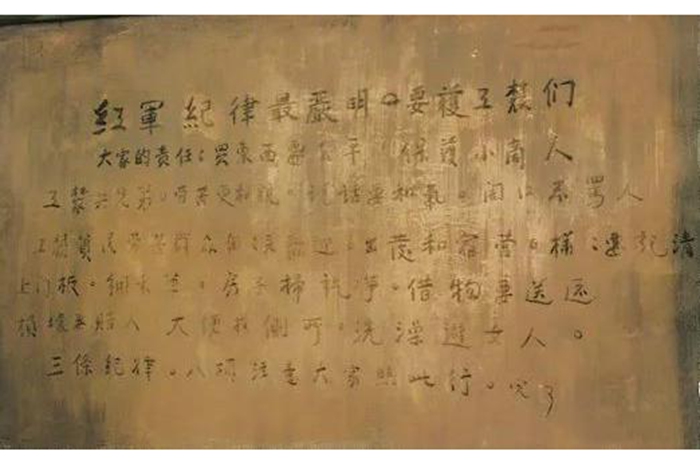 红軍紀律最嚴明。要護工農们
大家的责任:買東西要公平 保護小商人
工農 兄弟。 更和 。説話要和氣。開口不罵人
工 貧民 群众 。出發和宿營。樣:要記清
上门板。綑禾草。房子掃 净。借物要送还
損壞要賠人 大便找側所。洗澡避女人。
三條紀律。八項注意大家照此行。完了